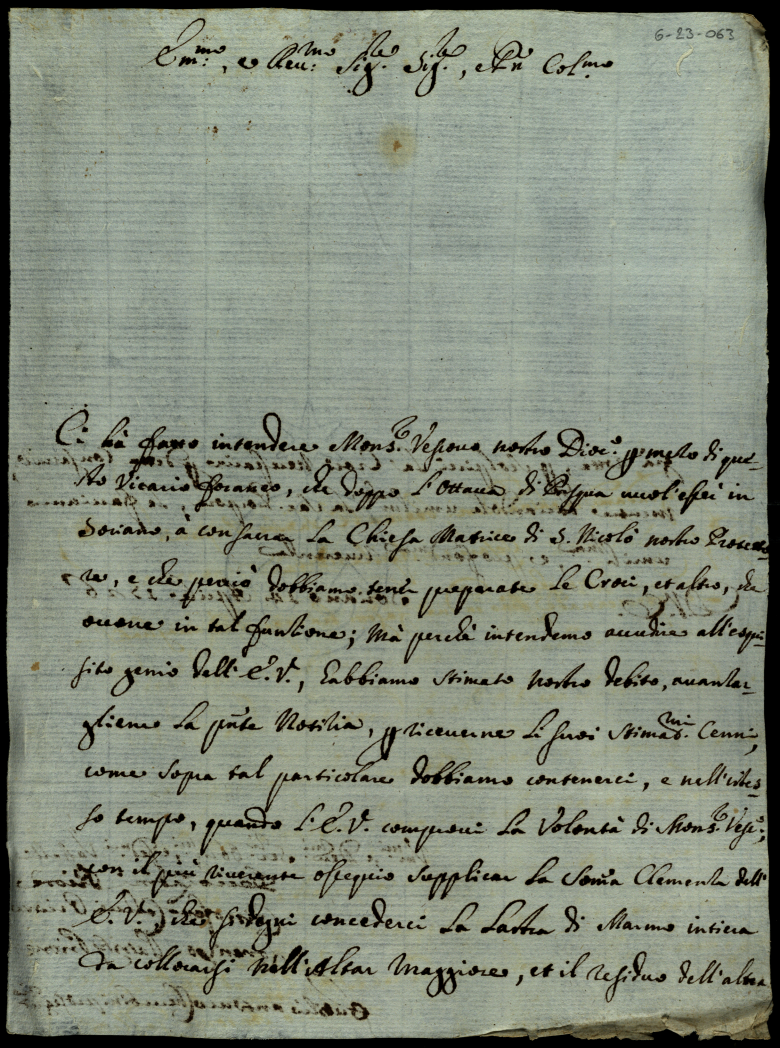 6-23-063
Em:mo, e Reu:mo Sig:re Sig:re, e Pn Colmo
Ci hà fatto intendere Mons:r Vescouo nostro Dioc:o p mezo di que-
sto Vicario foraneo, che doppo l'Ottaua di Pasqua vuol esser in
Soriano, à consacrar La Chiesa Matrice di S. Nicolò nostro Protetto
re, e che perciò dobbiamo tener preparate Le Croci, et altro, che
occorre in tal funtione; Mà perchè intendemo accudire all'esqui-
sito genio dell'E.V., habbiamo stimato nostro debito, auanzar-
gliene La pnte Notitia, p riceuerne Li suoi stimad:mi Cenni,
come sopra tal particolare dobbiamo contenerci, e nell'istes-
so tempo, quando L'E.V. comproui La Volontà di Mons:r Vesc:o,
con il più riuerente ossequio supplicar La somma Clemenza dell'
E.V., che si degni concederci La Lastra di Marmo intiera
da collocarsi nell'Altar Maggiore, et il residuo dell'altra